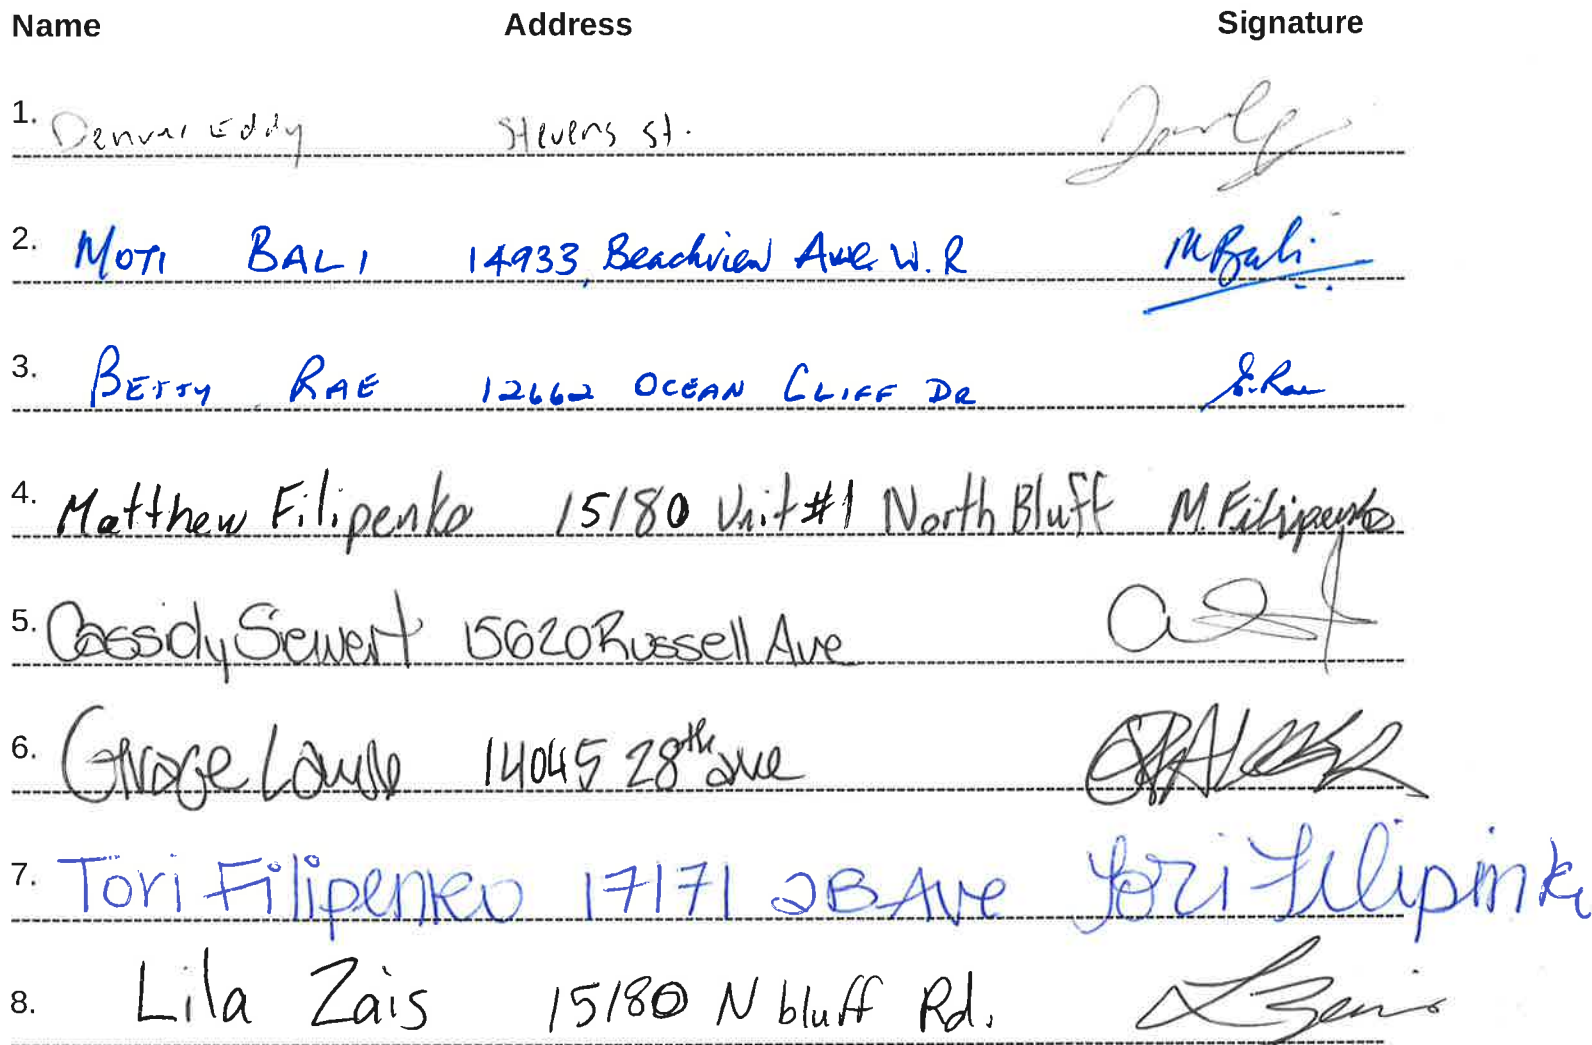 Name Address Signature
1. Denver Eddy Stevens st.
2. MOTI BALI 14933, Beachview Ave. W.R M Bali
3. BETTY RAE 12662 OCEAN CLIFF DR E. Rae
4. Matthew Filipenko 15180 Unit #1 North Bluff M. Filipenko
5. Cassidy Sewert 15620 Russell Ave
6. Grace 14045 28th ave
7. Tori Filipenko 17171 2B Ave Tori Filipink
8. Lila Zais 15180 N bluff Rd. L Zais